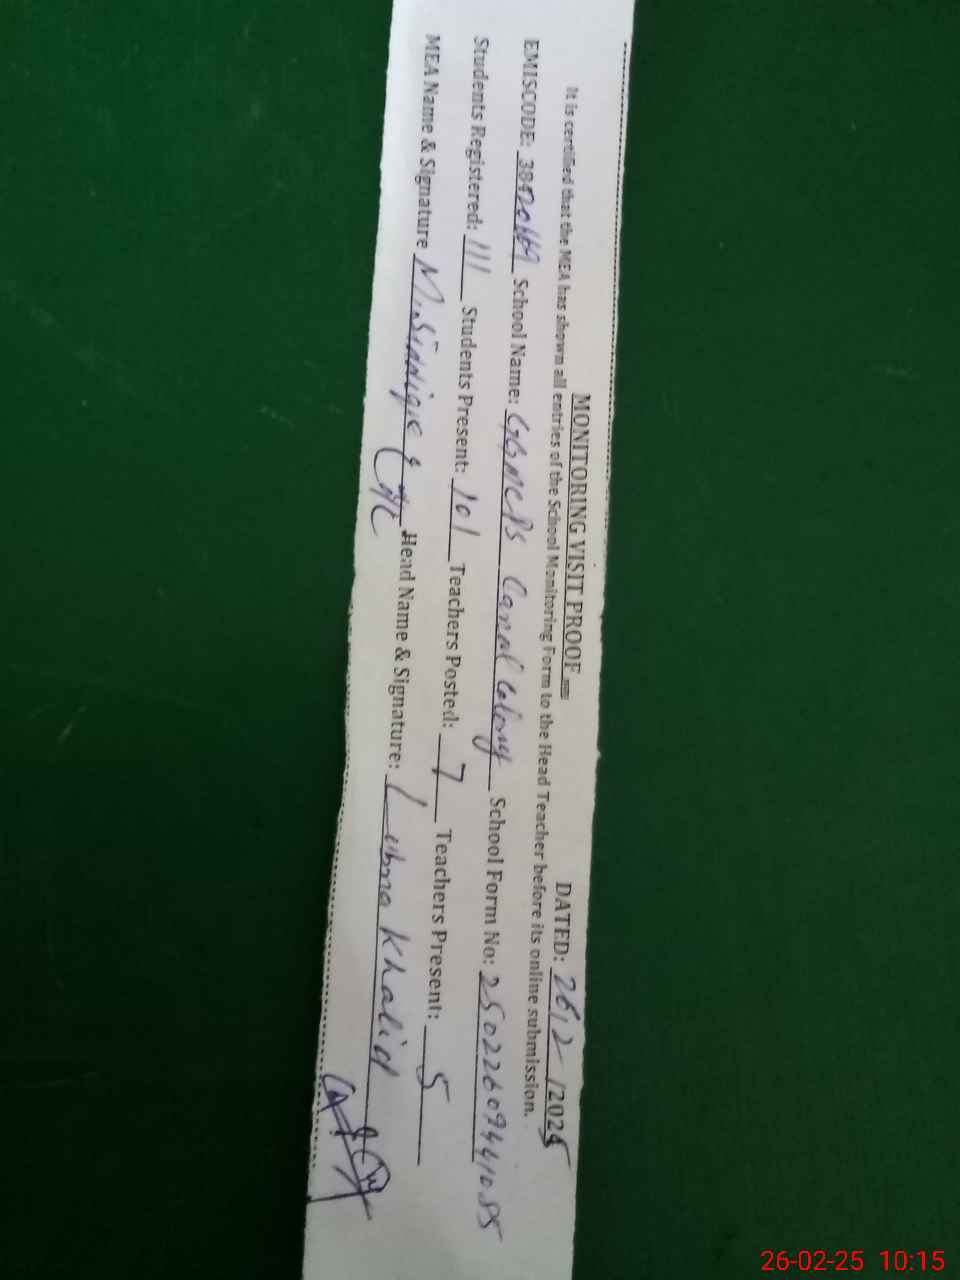 MONITORING VISIT PROOF
DATED: 26/2/2025
It is certified that the MEA has shown all entries of the School Monitoring Form to the Head Teacher before its online submission.
EMISCODE: School Name: GGMCPS Canal Colony School Form No: 25022609441085
Students Registered: 111 Students Present: 101 Teachers Posted: 7 Teachers Present: 5
MEA Name & Signature M.Siddique Head Name & Signature: Lubna Khalid
26-02-25 10:15